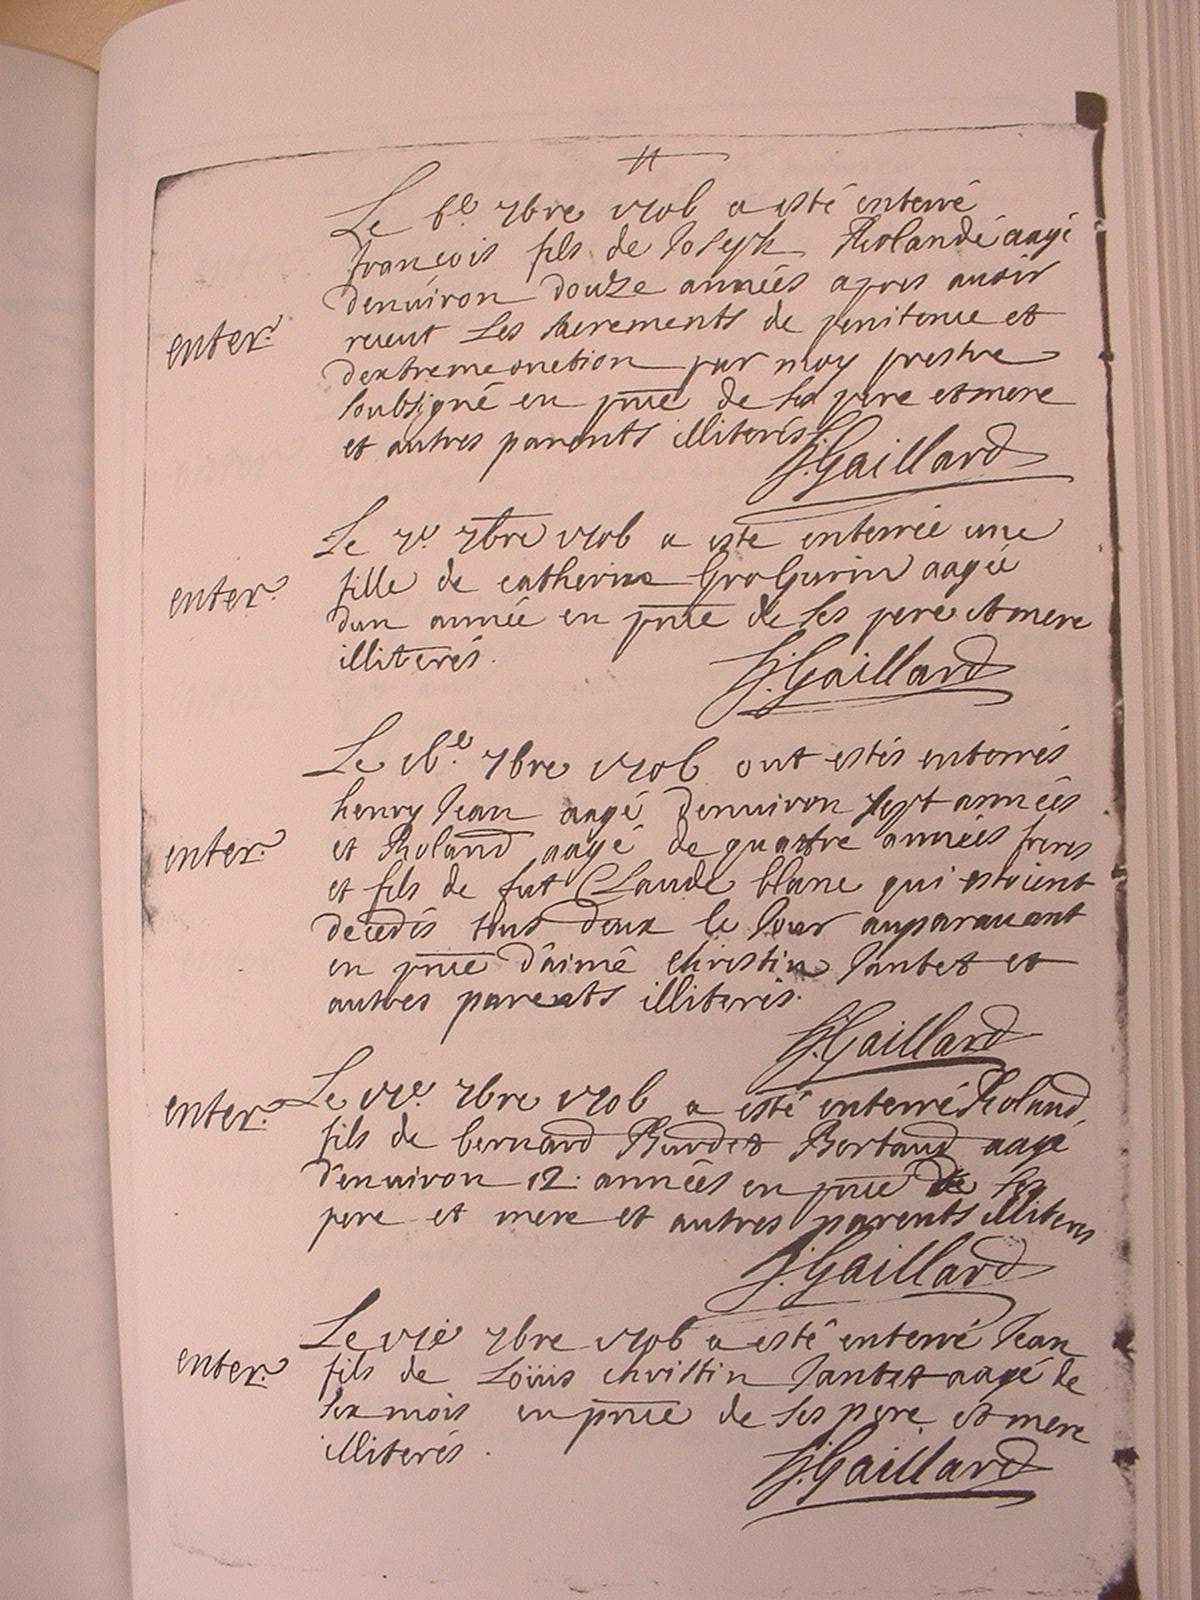 Le 6e 7bre 1706 a esté enterré
françois fils de Joseph Rolande aagé
denuiron douze années apres auoir
enter.
receut Les sacrements de penitence et
dextremeonction par moy prestre
soubsigné en pñce de ses pere et mere
et autres parents illiterés
Gaillard
Le 7e 7bre 1706 a esté enterrée une
fille de catherine aagée
enter.
dun année en pñce de ses pere et mere
illiterés.
Gaillard
Le 16.e 7bre 1706 ont estés enterrés
henry Jean aagé denuiron sept années
enter.
et Roland aagé de quattre années freres
et fils de fut Claude blanc qui estoient
decedés tous deux le Jour auparauant
en pñce d'aimé christin Jantet et
autres parents illiterés.
Gaillard
enter.
Le 17e. 7bre 1706 a esté enterré Roland
fils de bernard Burdet Bertaud aagé
d'enuiron 12. années en pñce de ses
pere et mere et autres parents illiteres
Gaillard
Le 17e 7bre 1706 a esté enterré Jean
enter.
fils de Loüis christin Jantet aagé de
six mois en pñce de ses pere et mere
illiterés.
Gaillard